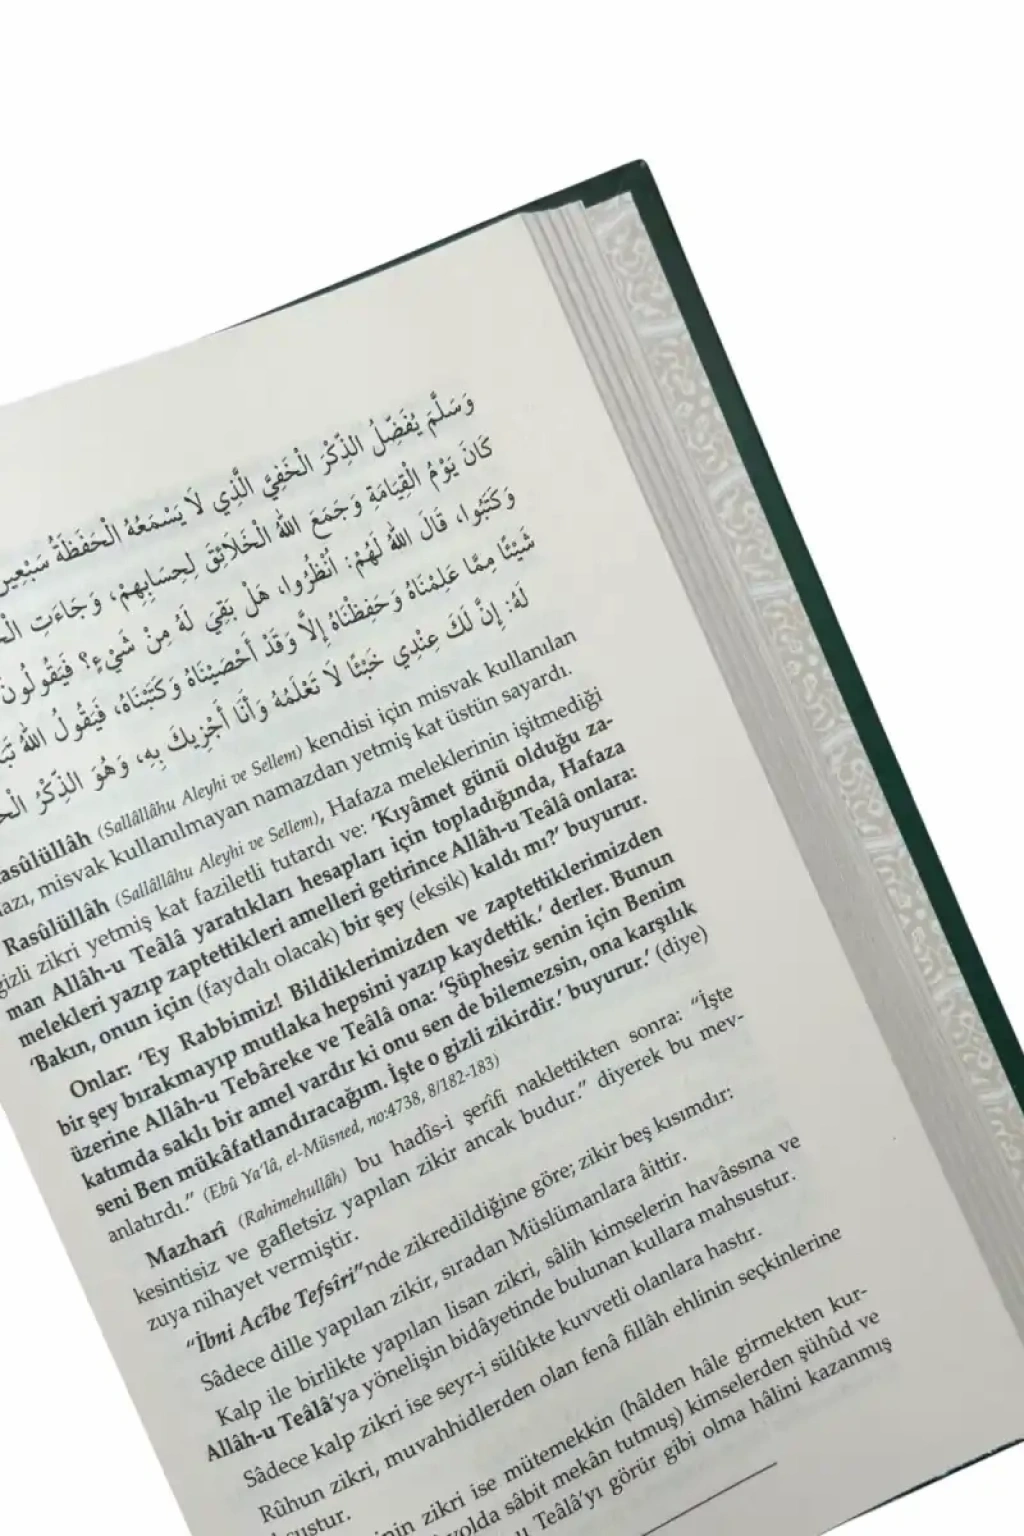 وَسَلَّمَ يُفَضِّلُ الذِّكْرَ الْخَفِيَّ الَّذِي لَا يَسْمَعُهُ الْحَفَظَةُ سَبْعِينَ
كَانَ يَوْمُ الْقِيَامَةِ وَجَمَعَ اللهُ الْخَلَائِقَ لِحِسَابِهِمْ، وَجَاءَتِ
وَكَتَبُوا، قَالَ اللهُ لَهُمْ: اُنْظُرُوا، هَلْ بَقِيَ لَهُ مِنْ شَيْءٍ؟ فَيَقُولُونَ
شَيْئًا مِمَّا عَلِمْنَاهُ وَحَفِظْنَاهُ إِلَّا وَقَدْ أَحْصَيْنَاهُ وَكَتَبْنَاهُ، فَيَقُولُ اللهُ
لَهُ: إِنَّ لَكَ عِنْدِي خَبْئًا لَا تَعْلَمُهُ وَأَنَا أَجْزِيكَ بِهِ، وَهُوَ الذِّكْرُ
asûlüllâh (Sallâllâhu Aleyhi ve Sellem) kendisi için misvak kullanılan
azı, misvak kullanılmayan namazdan yetmiş kat üstün sayardı.
Rasûlüllâh (Sallâllâhu Aleyhi ve Sellem), Hafaza meleklerinin işitmediği
gizli zikri yetmiş kat faziletli tutardı ve: 'Kıyâmet günü olduğu za-
man Allâh-u Teâlâ yaratıkları hesapları için topladığında, Hafaza
melekleri yazıp zaptettikleri amelleri getirince Allâh-u Teâlâ onlara:
'Bakın, onun için (faydalı olacak) bir şey (eksik) kaldı mı?' buyurur.
Onlar: 'Ey Rabbimiz! Bildiklerimizden ve zaptettiklerimizden
bir şey bırakmayıp mutlaka hepsini yazıp kaydettik.' derler. Bunun
üzerine Allâh-u Tebâreke ve Teâlâ ona: 'Şüphesiz senin için Benim
katımda saklı bir amel vardır ki onu sen de bilemezsin, ona karşılık
seni Ben mükâfatlandıracağım. İşte o gizli zikirdir.' buyurur.' (diye)
anlatırdı." (Ebû Ya'lâ, el-Müsned, no:4738, 8/182-183)
Mazharî (Rahimehullâh) bu hadîs-i şerîfi naklettikten sonra: "İşte
kesintisiz ve gafletsiz yapılan zikir ancak budur." diyerek bu mev-
zuya nihayet vermiştir.
"İbni Acîbe Tefsîri"nde zikredildiğine göre; zikir beş kısımdır:
Sâdece dille yapılan zikir, sıradan Müslümanlara âittir.
Kalp ile birlikte yapılan lisan zikri, sâlih kimselerin havâssına ve
Allâh-u Teâlâ'ya yönelişin bidâyetinde bulunan kullara mahsustur.
Sâdece kalp zikri ise seyr-i sülûkte kuvvetli olanlara hastır.
Rûhun zikri, muvahhidlerden olan fenâ fillâh ehlinin seçkinlerine
sustur.
zikri ise mütemekkin (hâlden hâle girmekten kur-
yolda sâbit mekân tutmuş) kimselerden şühûd ve
Teâlâ'yı görür gibi olma hâlini kazanmış